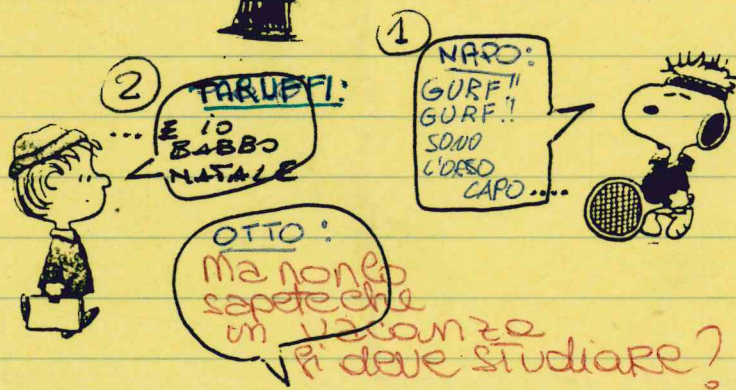 1
NAPO:
GURF!!
GURF!!
SONO
L'ORSO
CAPO....
2
TARUFFI:
... E IO
BABBO
NATALE
OTTO:
Ma non lo
sapete che
in vacanza
si deve STUDIARE?